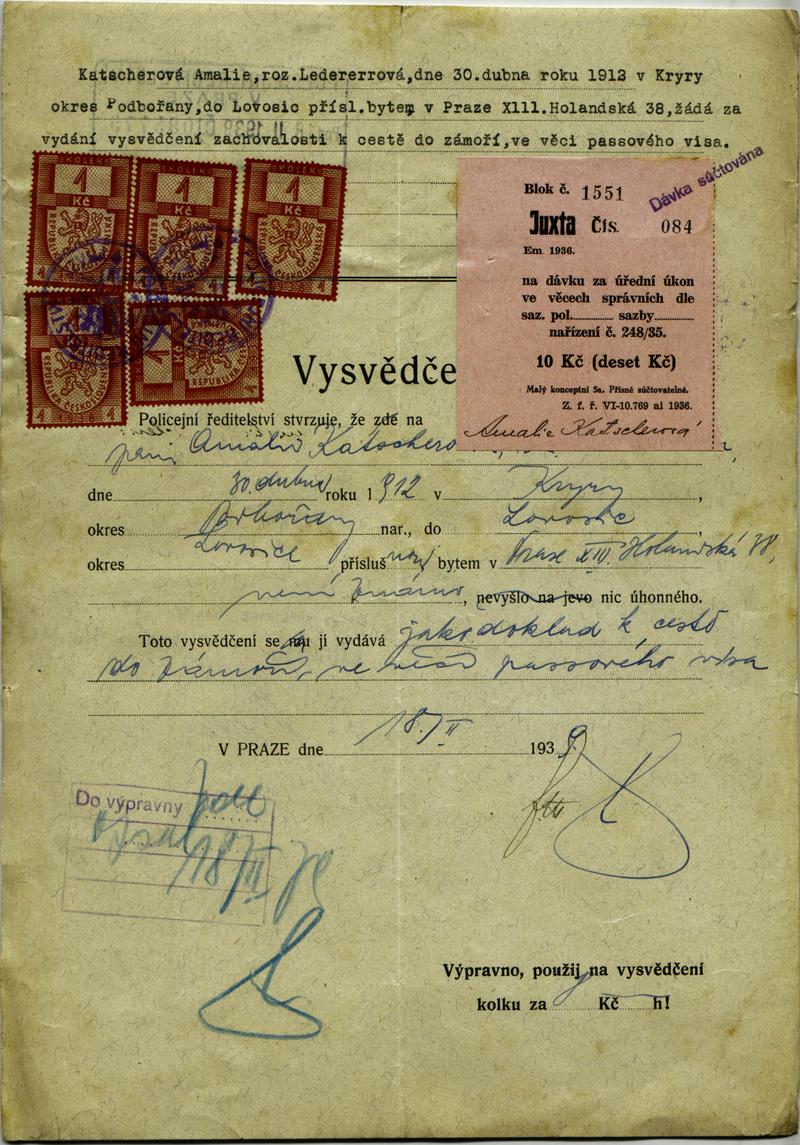 Katscherová Amalie,roz.Ledererrová,dne 30.dubna roku 1912 v Kryry
okres Podbořany,do Lovosic přísl.bytem v Praze XIII.Holandská 38,žádá za
vydání vysvědčení zachovalosti k cestě do zámoří,ve věci passového visa.
KOLEK
1
Kč
REPUBLIKA ČESKOSLOVENSKÁ
KOLEK
1
Kč
REPUBLIKA ČESKOSLOVENSKÁ
KOLEK
1
Kč
REPUBLIKA ČESKOSLOVENSKÁ
1
REPUBLIKA ČESKOSLOVENSKÁ
1
REPUBLIKA ČESKOSLOVENSKÁ
Blok č. 1551
Dávka súčtována
Juxta Čís. 084
Em. 1936.
na dávku za úřední úkon
ve věcech správních dle
saz. pol. sazby
nařízení č. 248/35.
10 Kč (deset Kč)
Malý konceptní Sa. Přísně súčtovatelné.
Z. f. ř. VI-10.769 ai 1936.
Amalie Katscherová
Vysvědče
Policejní ředitelství stvrzuje, že zde na
paní Amalii Katschero
dne 30. dubna roku 1912 v Kryry,
okres Podbořany nar., do Lovosic,
okres Lovosice přísluš nou bytem v Praze XIII. Holandská 38,
není známo, nevyšlo na jevo nic úhonného.
Toto vysvědčení se jí vydává jako doklad k cestě
do zámoří, ve věci passového visa
V PRAZE dne 18./II 1939
Do výpravny
18/II 39
Výpravno, použij na vysvědčení
kolku za Kč h!